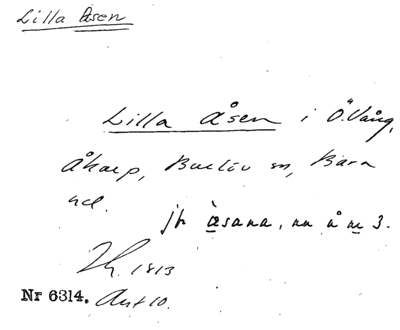 Lilla Åsen
Lilla Åsen i Ö. Vång,
Åkarp, Burlöv sn, Bara
hd.
jfr åsana, nn å m 3.
1813
Nr 6314. Ant 10.